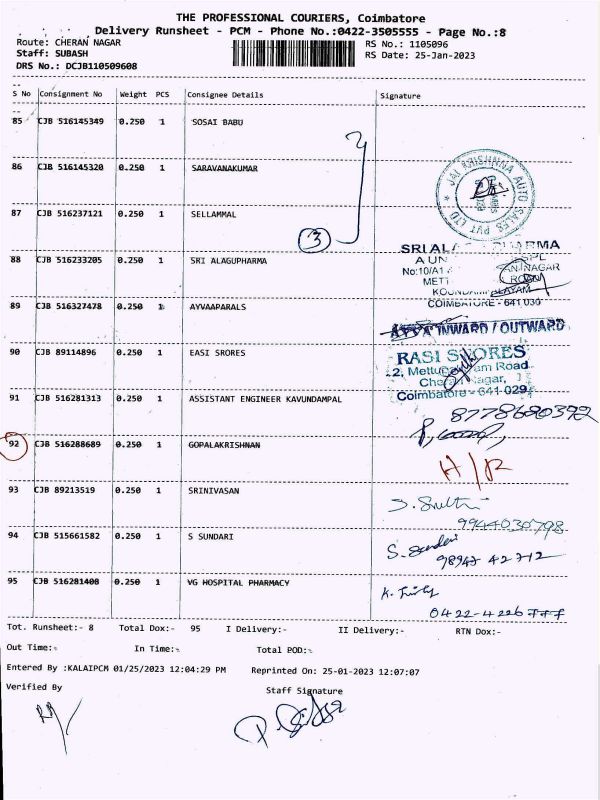 THE PROFESSIONAL COURIERS, Coimbatore
Delivery Runsheet - PCM - Phone No.:0422-3505555 - Page No.:8
Route: CHERAN NAGAR RS No.: 1105096
Staff: SUBASH RS Date: 25-Jan-2023
DRS No.: DCJB110509608
S No Consignment No Weight PCS Consignee Details Signature
85 CJB 516145349 0.250 1 SOSAI BABU
86 CJB 516145320 0.250 1 SARAVANAKUMAR
JAI KRISHNNA AUTO SALES PVT LTD
87 CJB 516237121 0.250 1 SELLAMMAL
3
SRI AL PHARMA
88 CJB 516233205 0.250 1 SRI ALAGUPHARMA
No:10/A1
COIMBATORE - 641 030
89 CJB 516327478 0.250 1 AYVAAPARALS
INWARD / OUTWARD
90 CJB 89114896 0.250 1 EASI SRORES
RASI STORES
2, Mettupalayam Road
Cheran Nagar,
Coimbatore - 641 029
91 CJB 516281313 0.250 1 ASSISTANT ENGINEER KAVUNDAMPAL
8778680392
92 CJB 516288689 0.250 1 GOPALAKRISHNAN
93 CJB 89213519 0.250 1 SRINIVASAN
9944030798
94 CJB 515661582 0.250 1 S SUNDARI
S. Sundari
98943 42712
95 CJB 516281408 0.250 1 VG HOSPITAL PHARMACY
0422-4226777
Tot. Runsheet:- 8 Total Dox:- 95 I Delivery:- II Delivery:- RTN Dox:-
Out Time:- In Time:- Total POD:-
Entered By :KALAIPCM 01/25/2023 12:04:29 PM Reprinted On: 25-01-2023 12:07:07
Verified By Staff Signature